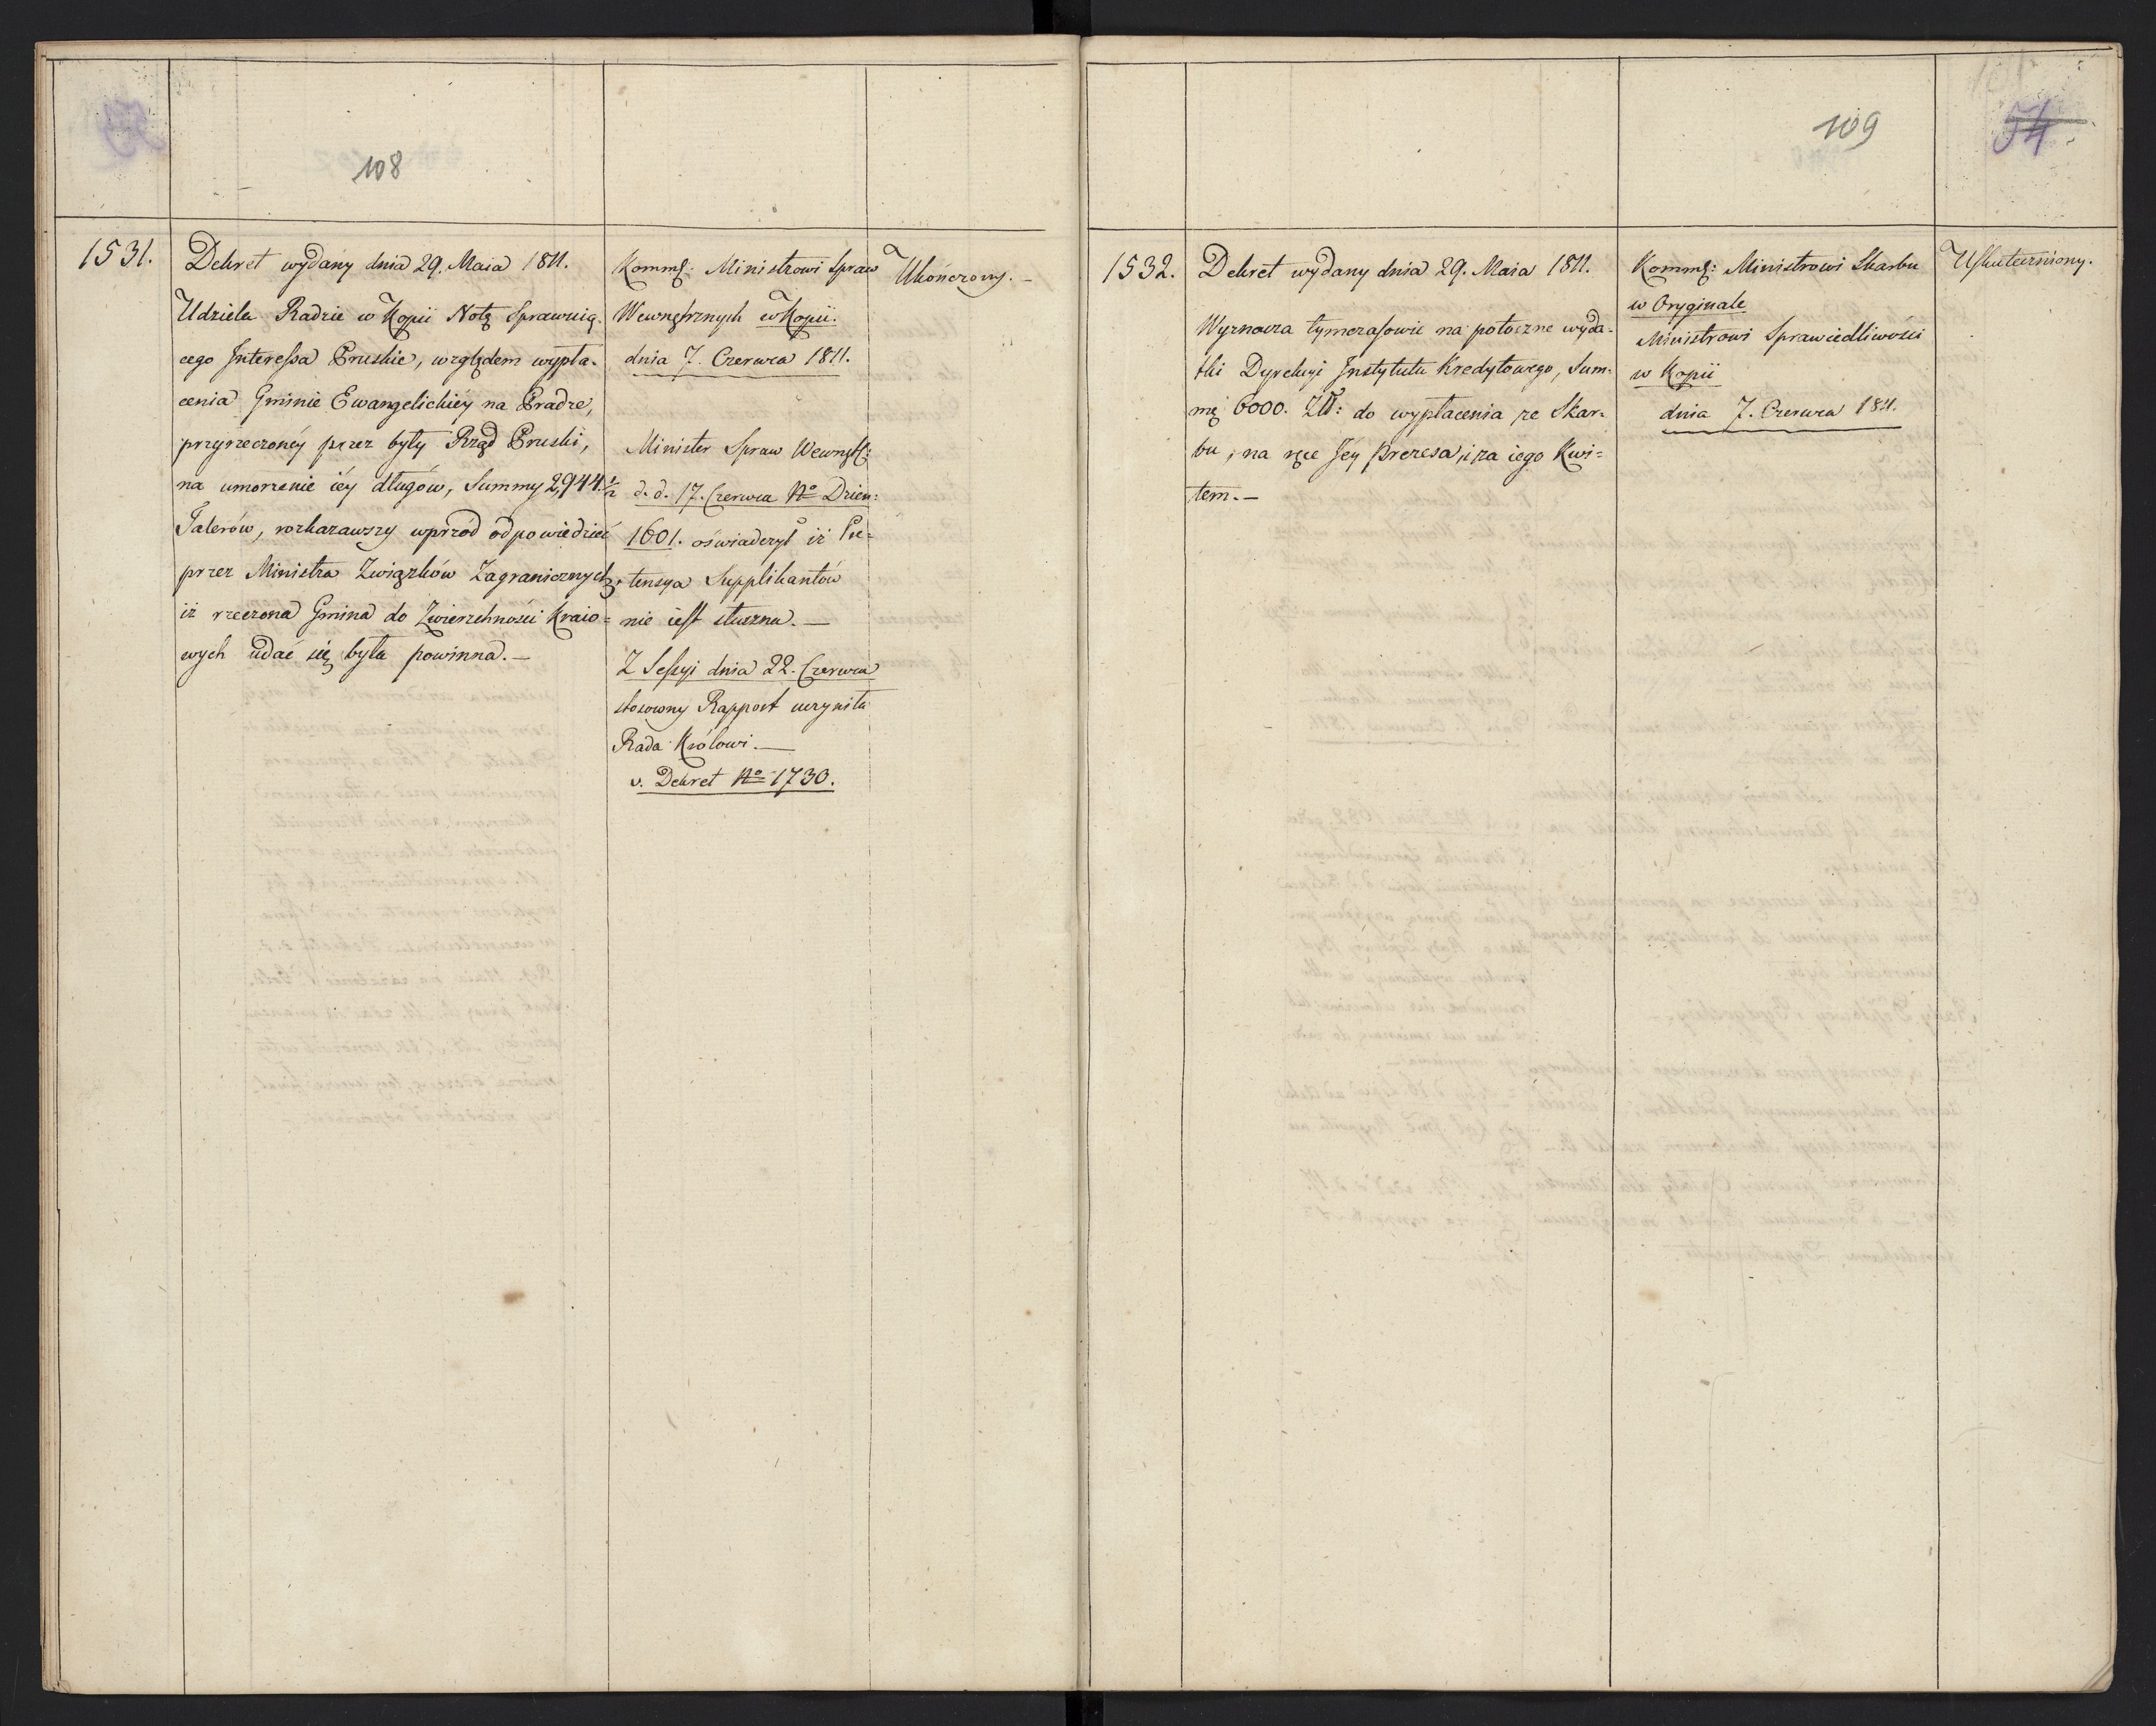 108
1531.
Dekret wydany dnia 29. Maia 1811.
Udziela Radzie w Kopii Notę Sprawuią-
cego Interessa Pruskie, względem wypła-
cenia Gminie Ewangelickiéy na Pradze,
przyrzeczonéy przez były Rząd Pruski,
na umorzenie iéy długów, Summy 2,944.½
Talerów, rozkazawszy wprzód odpowiedzieć
przez Ministra Związków Zagranicznych,
iż rzeczona Gmina do Zwierzchności Kraio=
wych udać się była powinna.—
Kommſ: Ministrowi Spraw
Wewnętrznych w Kopii.
dnia 7. Czerwca 1811.
Minister Spraw Wewnętſ:
d. d. 17. Czerwca No Dzien:
1601. oświadczył iż Pre=
tensya Supplikantów
nie iest słuszna.—
Z Sessyi dnia 22. Czerwca
stosowny Rapport uczyniła
Rada Królowi.—
v. Dekret No 1730.
Ukończony.—
109
54
1532.
Dekret wydany dnia 29. Maia 1811.
Wyznacza tymczasowie na potoczne wyda-
tki Dyrekcyi Instytutu Kredytowego, Sum-
mę 6000. Zł: do wypłacenia ze Skar-
bu, na ręce Jéy Prezesa, i za iego Kwi=
tem.—
Kommſ: Ministrowi Skarbu
w Oryginale
Ministrowi Sprawiedliwości
w Kopii
dnia 7. Czerwca 1811.
Uskuteczniony.